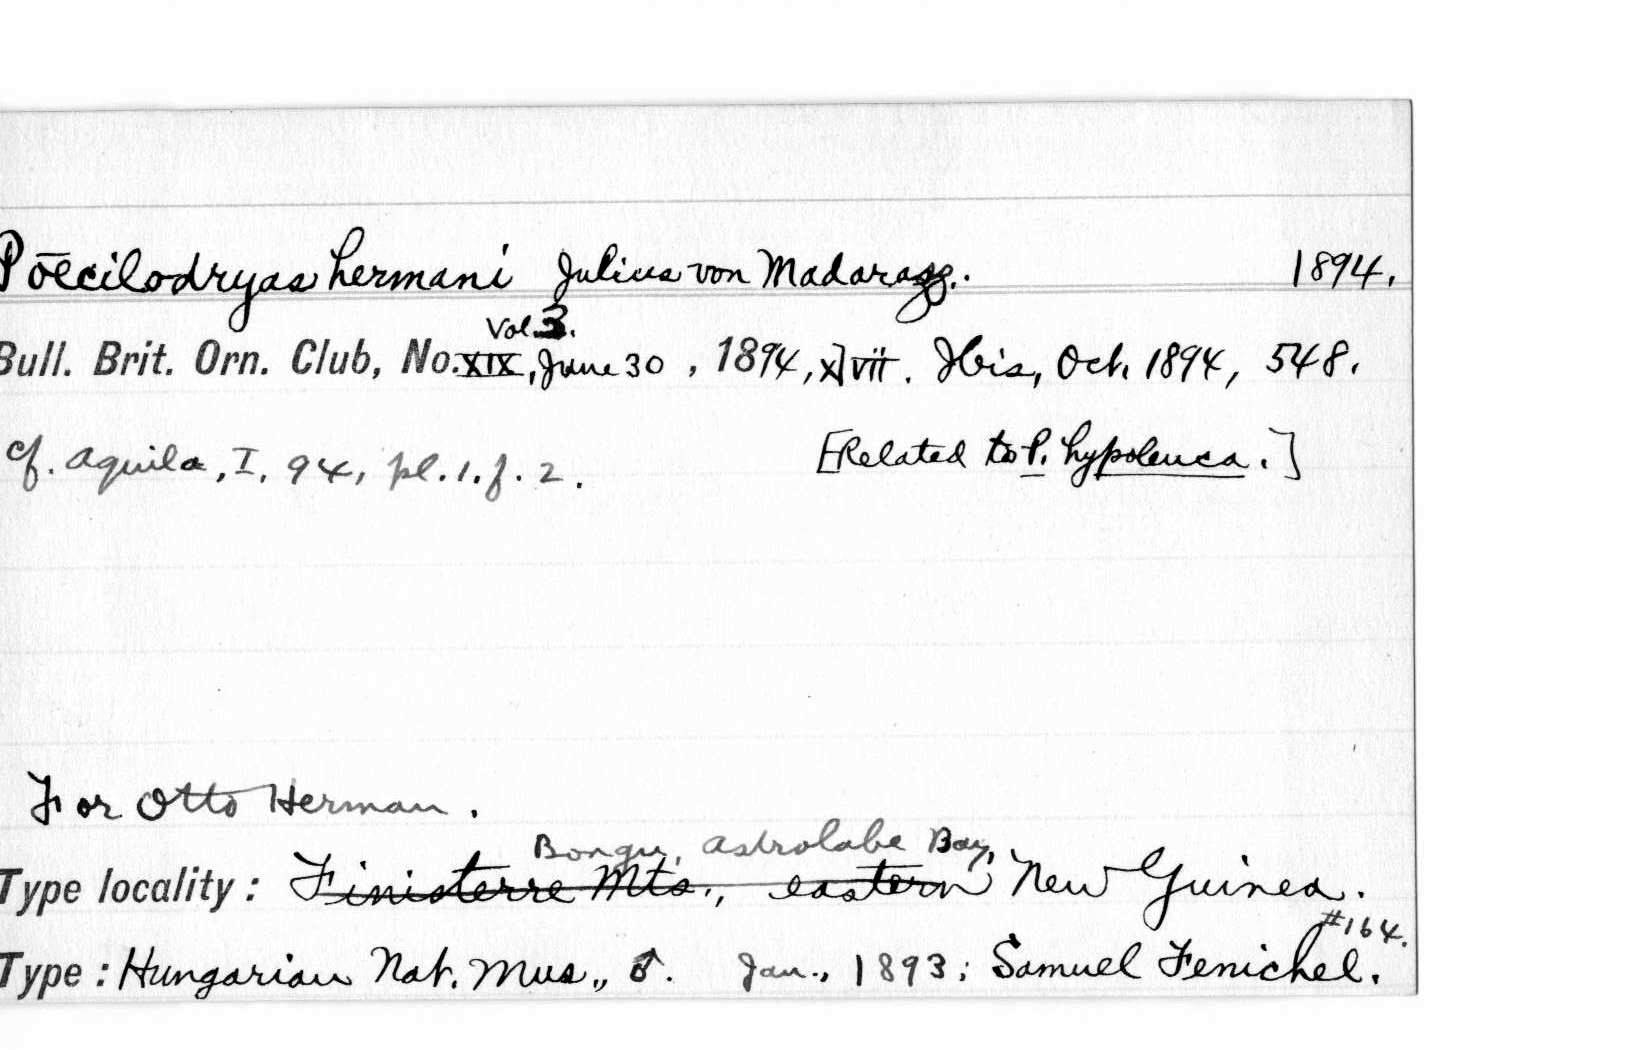 Pōecilodryas hermani Julius von Madarasz. 1894.
Vol. 3.
Bull. Brit. Orn. Club, No. XIX, June 30, 1894, xlvii. Ibis, Oct. 1894, 548.
cf. Aquila, I, 94, pl. 1. f. 2. [Related to P. hypoleuca.]
For Otto Herman.
Bongu, Astrolabe Bay,
Type locality: Finisterre Mts., eastern New Guinea.
#164.
Type: Hungarian Nat. Mus., ♂. Jan., 1893; Samuel Fenichel.